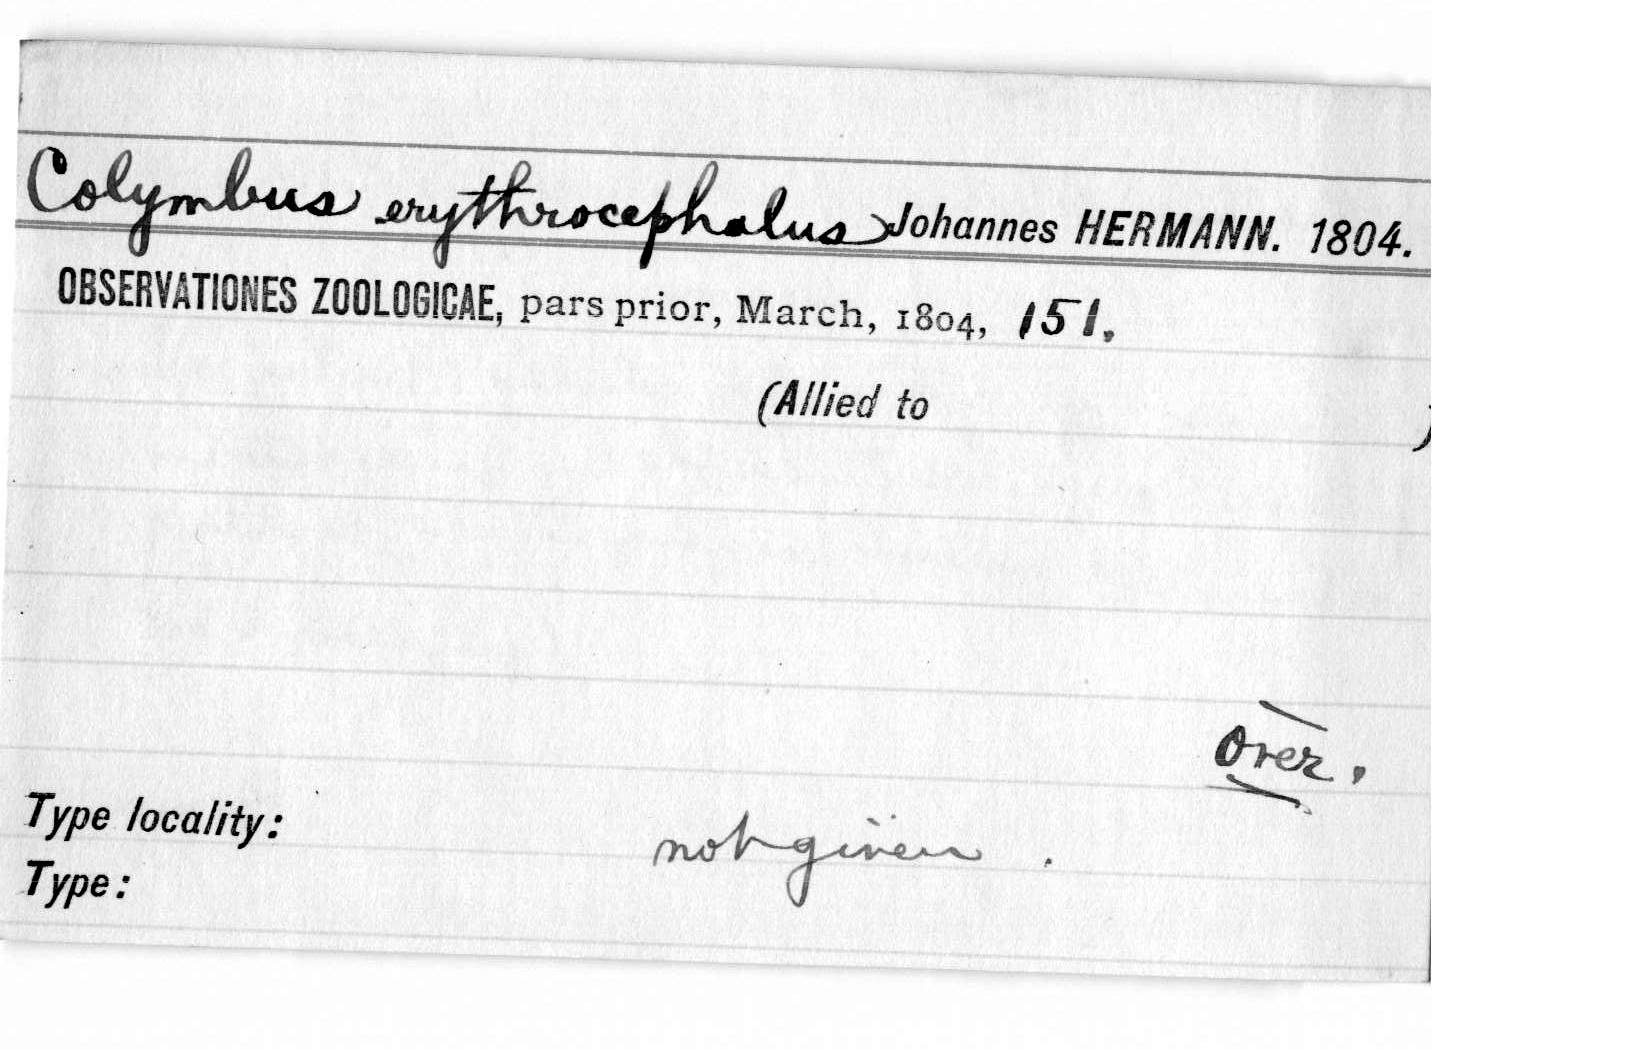 Colymbus erythrocephalus Johannes HERMANN. 1804.
OBSERVATIONES ZOOLOGICAE, pars prior, March, 1804, 151.
(Allied to )
Over.
Type locality: not given.
Type: